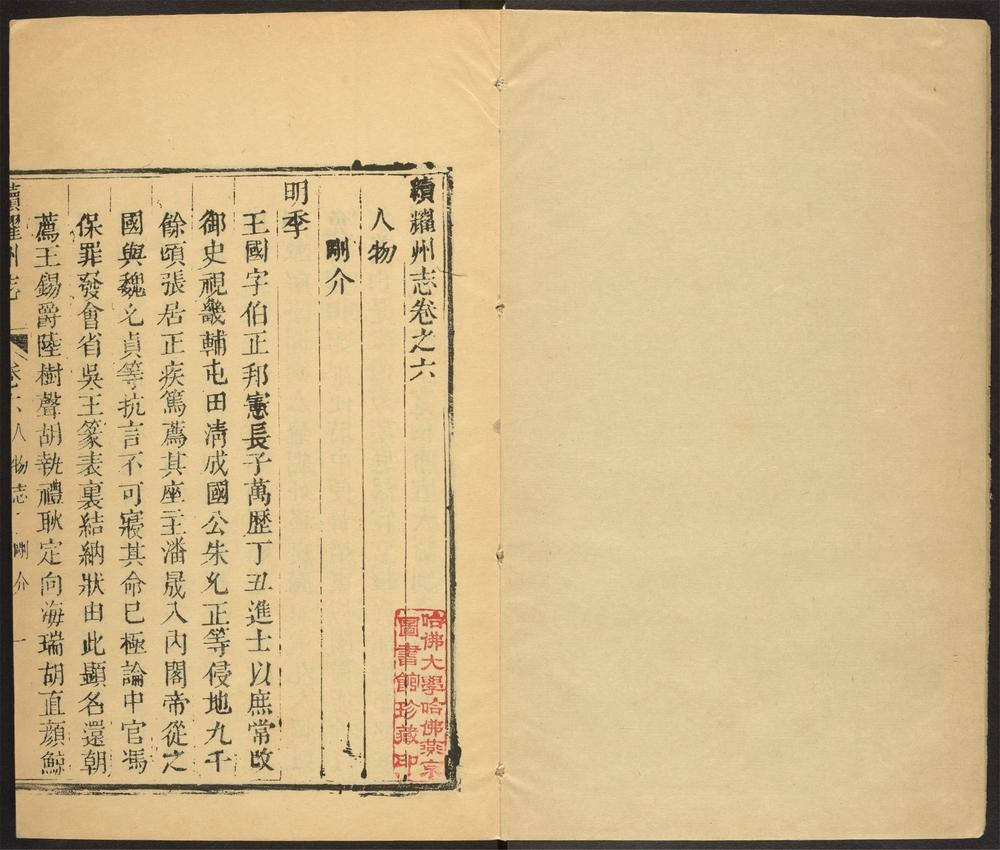 續耀州志卷之六
人物
剛介
明季
王國字伯正邦憲長子萬歷丁丑進士以庶常改
御史視畿輔屯田清成國公朱允正等侵地九千
餘頃張居正疾篤薦其座主潘晟入内閣帝從之
國與魏允貞等抗言不可寢其命已極論中官馮
保罪發會省吳王篆表裏結納狀由此顯名還朝
薦王錫爵陸樹聲胡執禮耿定向海瑞胡直顔鯨
續耀州志
卷六人物志 剛介
一
哈佛大學哈佛燕京
圖書館珍藏印